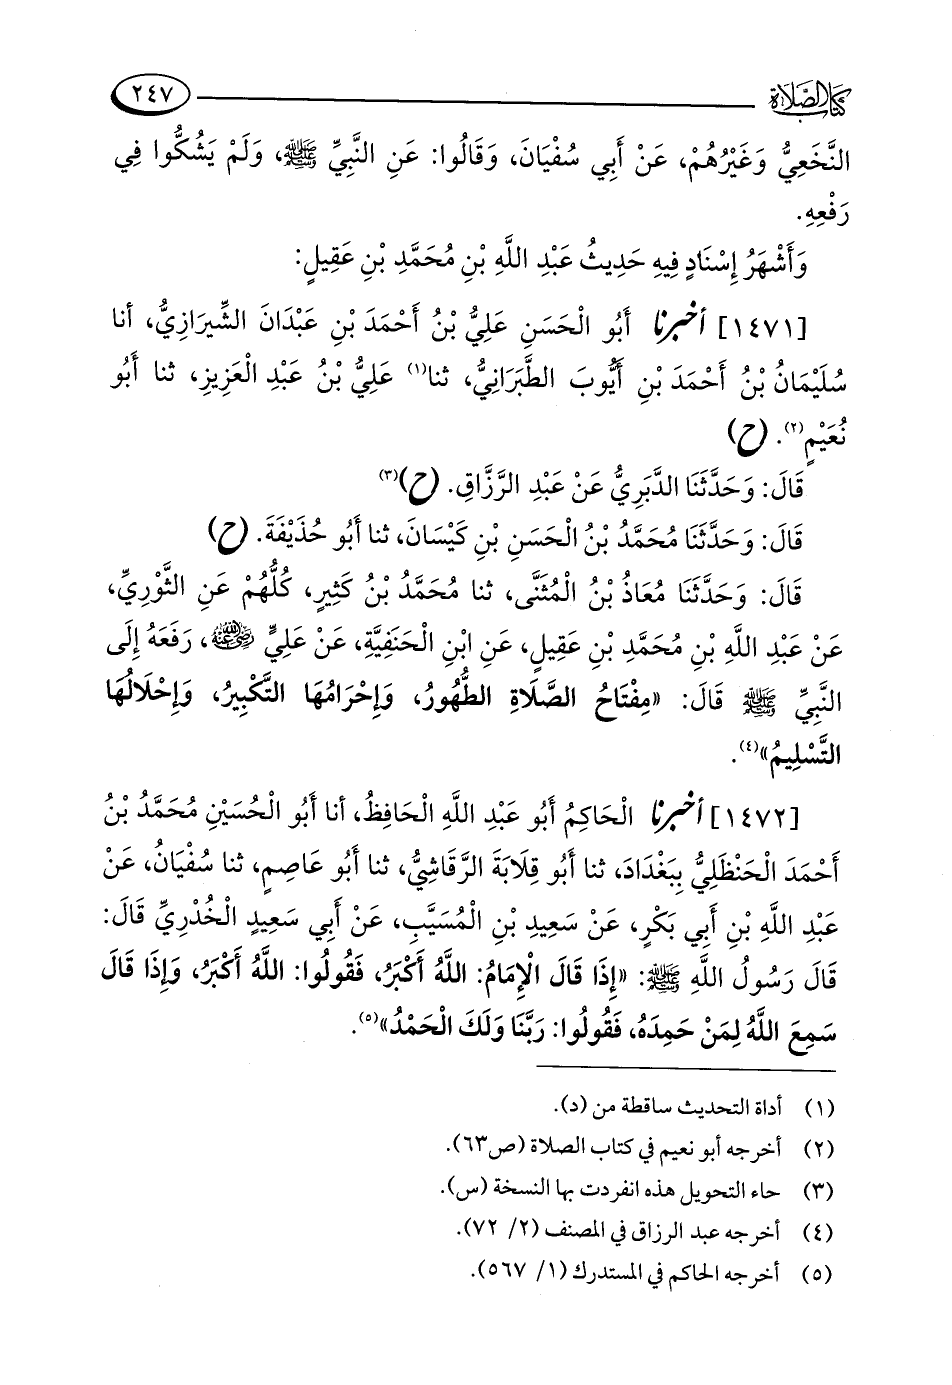 كتاب الصلاة ٢٤٧
النَّخَعِيُّ وَغَيْرُهُمْ، عَنْ أَبِي سُفْيَانَ، وَقَالُوا: عَنِ النَّبِيِّ ﷺ، وَلَمْ يَشُكُّوا فِي
رَفْعِهِ.
وَأَشْهَرُ إِسْنَادٍ فِيهِ حَدِيثُ عَبْدِ اللَّهِ بْنِ مُحَمَّدِ بْنِ عَقِيلٍ:
[١٤٧١] أخبرنا أَبُو الْحَسَنِ عَلِيُّ بْنُ أَحْمَدَ بْنِ عَبْدَانَ الشِّيرَازِيُّ، أنا
سُلَيْمَانُ بْنُ أَحْمَدَ بْنِ أَيُّوبَ الطَّبَرَانِيُّ، ثنا(١) عَلِيُّ بْنُ عَبْدِ الْعَزِيزِ، ثنا أَبُو
نُعَيْمٍ(٢). (ح)
قَالَ: وَحَدَّثَنَا الدَّبَرِيُّ عَنْ عَبْدِ الرَّزَّاقِ. (ح)(٣)
قَالَ: وَحَدَّثَنَا مُحَمَّدُ بْنُ الْحَسَنِ بْنِ كَيْسَانَ، ثنا أَبُو حُذَيْفَةَ. (ح)
قَالَ: وَحَدَّثَنَا مُعَاذُ بْنُ الْمُثَنَّى، ثنا مُحَمَّدُ بْنُ كَثِيرٍ، كُلُّهُمْ عَنِ الثَّوْرِيِّ،
عَنْ عَبْدِ اللَّهِ بْنِ مُحَمَّدِ بْنِ عَقِيلٍ، عَنِ ابْنِ الْحَنَفِيَّةِ، عَنْ عَلِيٍّ رضي الله عنه، رَفَعَهُ إِلَى
النَّبِيِّ ﷺ قَالَ: «مِفْتَاحُ الصَّلَاةِ الطُّهُورُ، وَإِحْرَامُهَا التَّكْبِيرُ، وَإِحْلَالُهَا
التَّسْلِيمُ»(٤).
[١٤٧٢] أخبرنا الْحَاكِمُ أَبُو عَبْدِ اللَّهِ الْحَافِظُ، أنا أَبُو الْحُسَيْنِ مُحَمَّدُ بْنُ
أَحْمَدَ الْحَنْظَلِيُّ بِبَغْدَادَ، ثنا أَبُو قِلَابَةَ الرَّقَاشِيُّ، ثنا أَبُو عَاصِمٍ، ثنا سُفْيَانُ، عَنْ
عَبْدِ اللَّهِ بْنِ أَبِي بَكْرٍ، عَنْ سَعِيدِ بْنِ الْمُسَيَّبِ، عَنْ أَبِي سَعِيدٍ الْخُدْرِيِّ قَالَ:
قَالَ رَسُولُ اللَّهِ ﷺ: «إِذَا قَالَ الْإِمَامُ: اللَّهُ أَكْبَرُ، فَقُولُوا: اللَّهُ أَكْبَرُ، وَإِذَا قَالَ
سَمِعَ اللَّهُ لِمَنْ حَمِدَهُ، فَقُولُوا: رَبَّنَا وَلَكَ الْحَمْدُ»(٥).
(١) أداة التحديث ساقطة من (د).
(٢) أخرجه أبو نعيم في كتاب الصلاة (ص٦٣).
(٣) حاء التحويل هذه انفردت بها النسخة (س).
(٤) أخرجه عبد الرزاق في المصنف (٢/ ٧٢).
(٥) أخرجه الحاكم في المستدرك (١/ ٥٦٧).